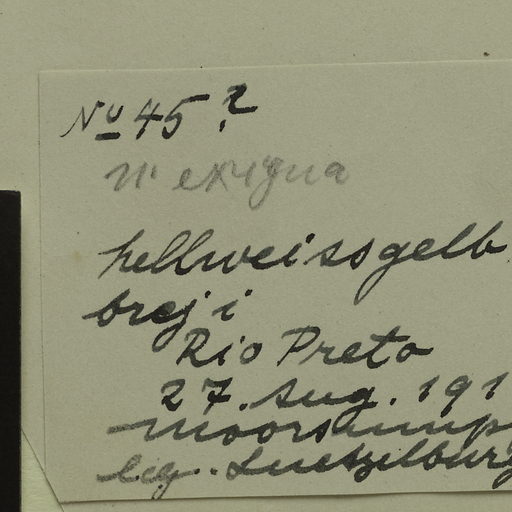 No 45?
M. exigua
hellweissgelb
breji
Rio Preto
27. Aug. 191
moorsump
leg. Luetzelburg